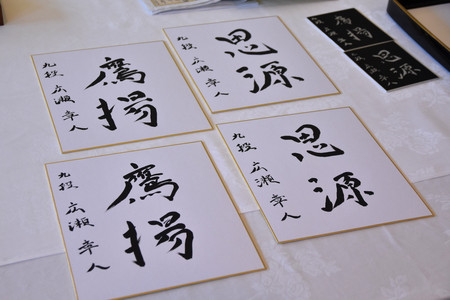 鷹揚
九段 広瀬章人
思源
九段 広瀬章人
鷹揚
九段 広瀬章人
思源
九段 広瀬章人
鷹揚
思源